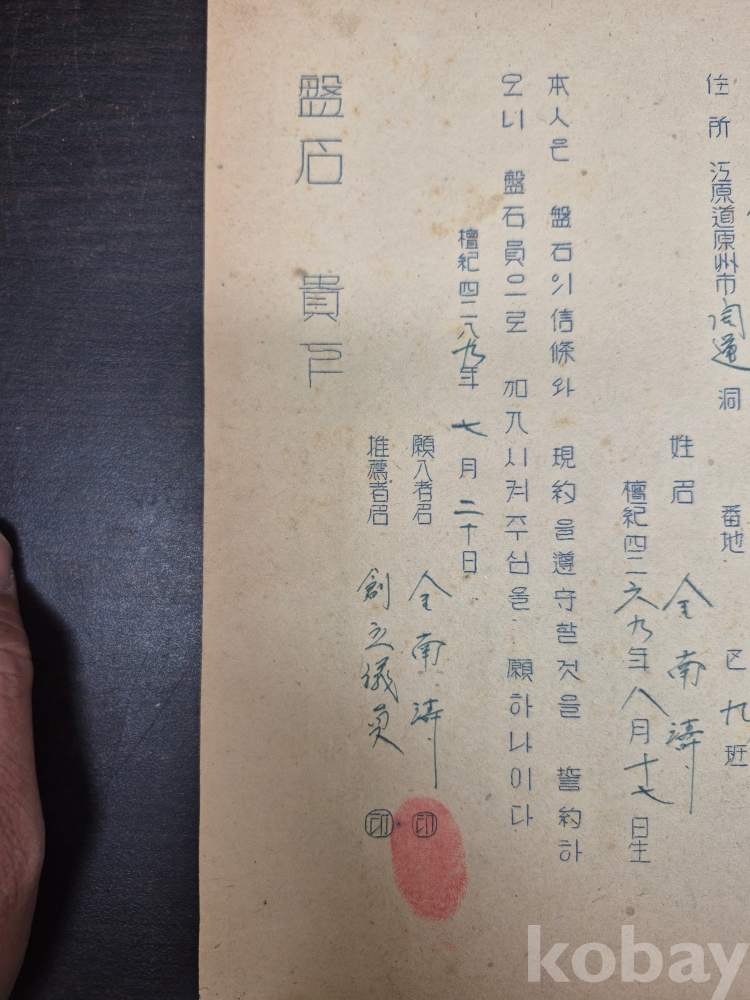 住所 江原道原州市 洞 番地 区 九 班
姓名 全南濤
檀紀四二六九年八月十七日生
本人은 盤石의 信條와 現約을 遵守할것을 誓約하
오니 盤石員으로 加入시켜주심을 願하나이다
檀紀四二八九年 七月二十日
願入者名 全南濤 印
推薦者名 創立議員 印
盤石 貴下
kobay